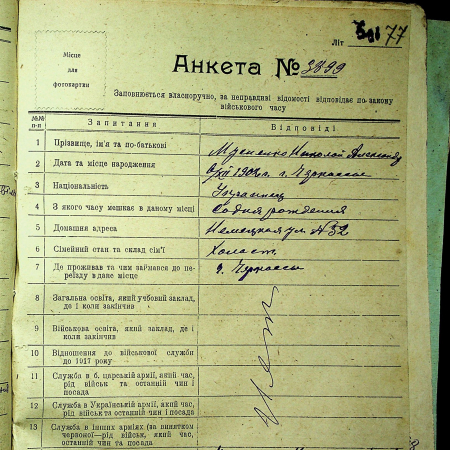 Літ 77
Місце
для
фотокартки
Анкета № 3899
Заповнюється власноручно, за неправдиві відомості відповідає по закону
військового часу
№№ п-п Запитання Відповіді
1 Прізвище, ім'я та по-батькові Николай
2 Дата та місце народження г. Черкассы
3 Національність Украинец
4 З якого часу мешкає в даному місці Со дня рождения
5 Домашня адреса Немецкая ул. № 32
6 Сімейний стан та склад сім'ї Холост.
7 Де проживав та чим займався до переїзду в дане місце г. Черкассы
8 Загальна освіта, який учбовий заклад,
де і коли закінчив
9 Військова освіта, який заклад, де і
коли закінчив
10 Відношення до військової служби
до 1917 року
11 Служба в б. царській армії, який час,
рід військ та останній чин і
посада
12 Служба в Українській армії, який час,
рід військ та останній чин і посада
13 Служба в інших арміях (за винятком
червоної—рід військ, який час,
останній чин та посада